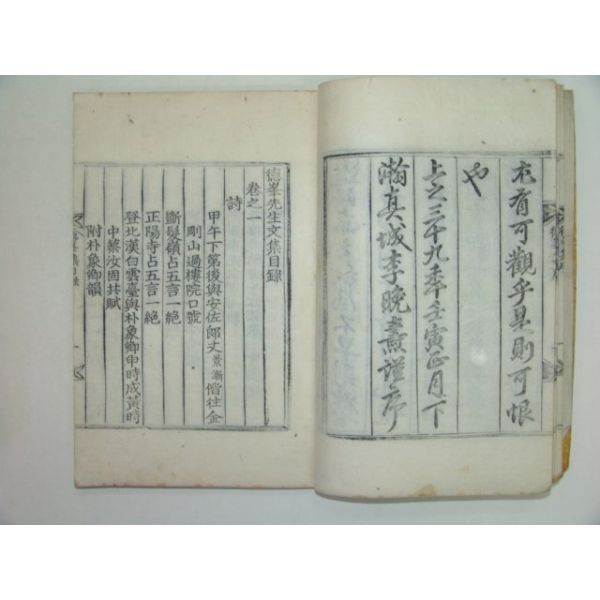 本有可觀乎是則可恨
也
上之三十九年壬寅正月下
瀚真城李晩燾謹序
德峯先生文集目錄
卷之一
詩
甲午下第後與安佐郞丈景漸偕往金
剛山過樓院口號
斷髮嶺占五言一絶
正陽寺占五言一絶
登北漢白雲臺與朴象卿申時成黃時
中蔡汝固共賦
附朴象卿韻